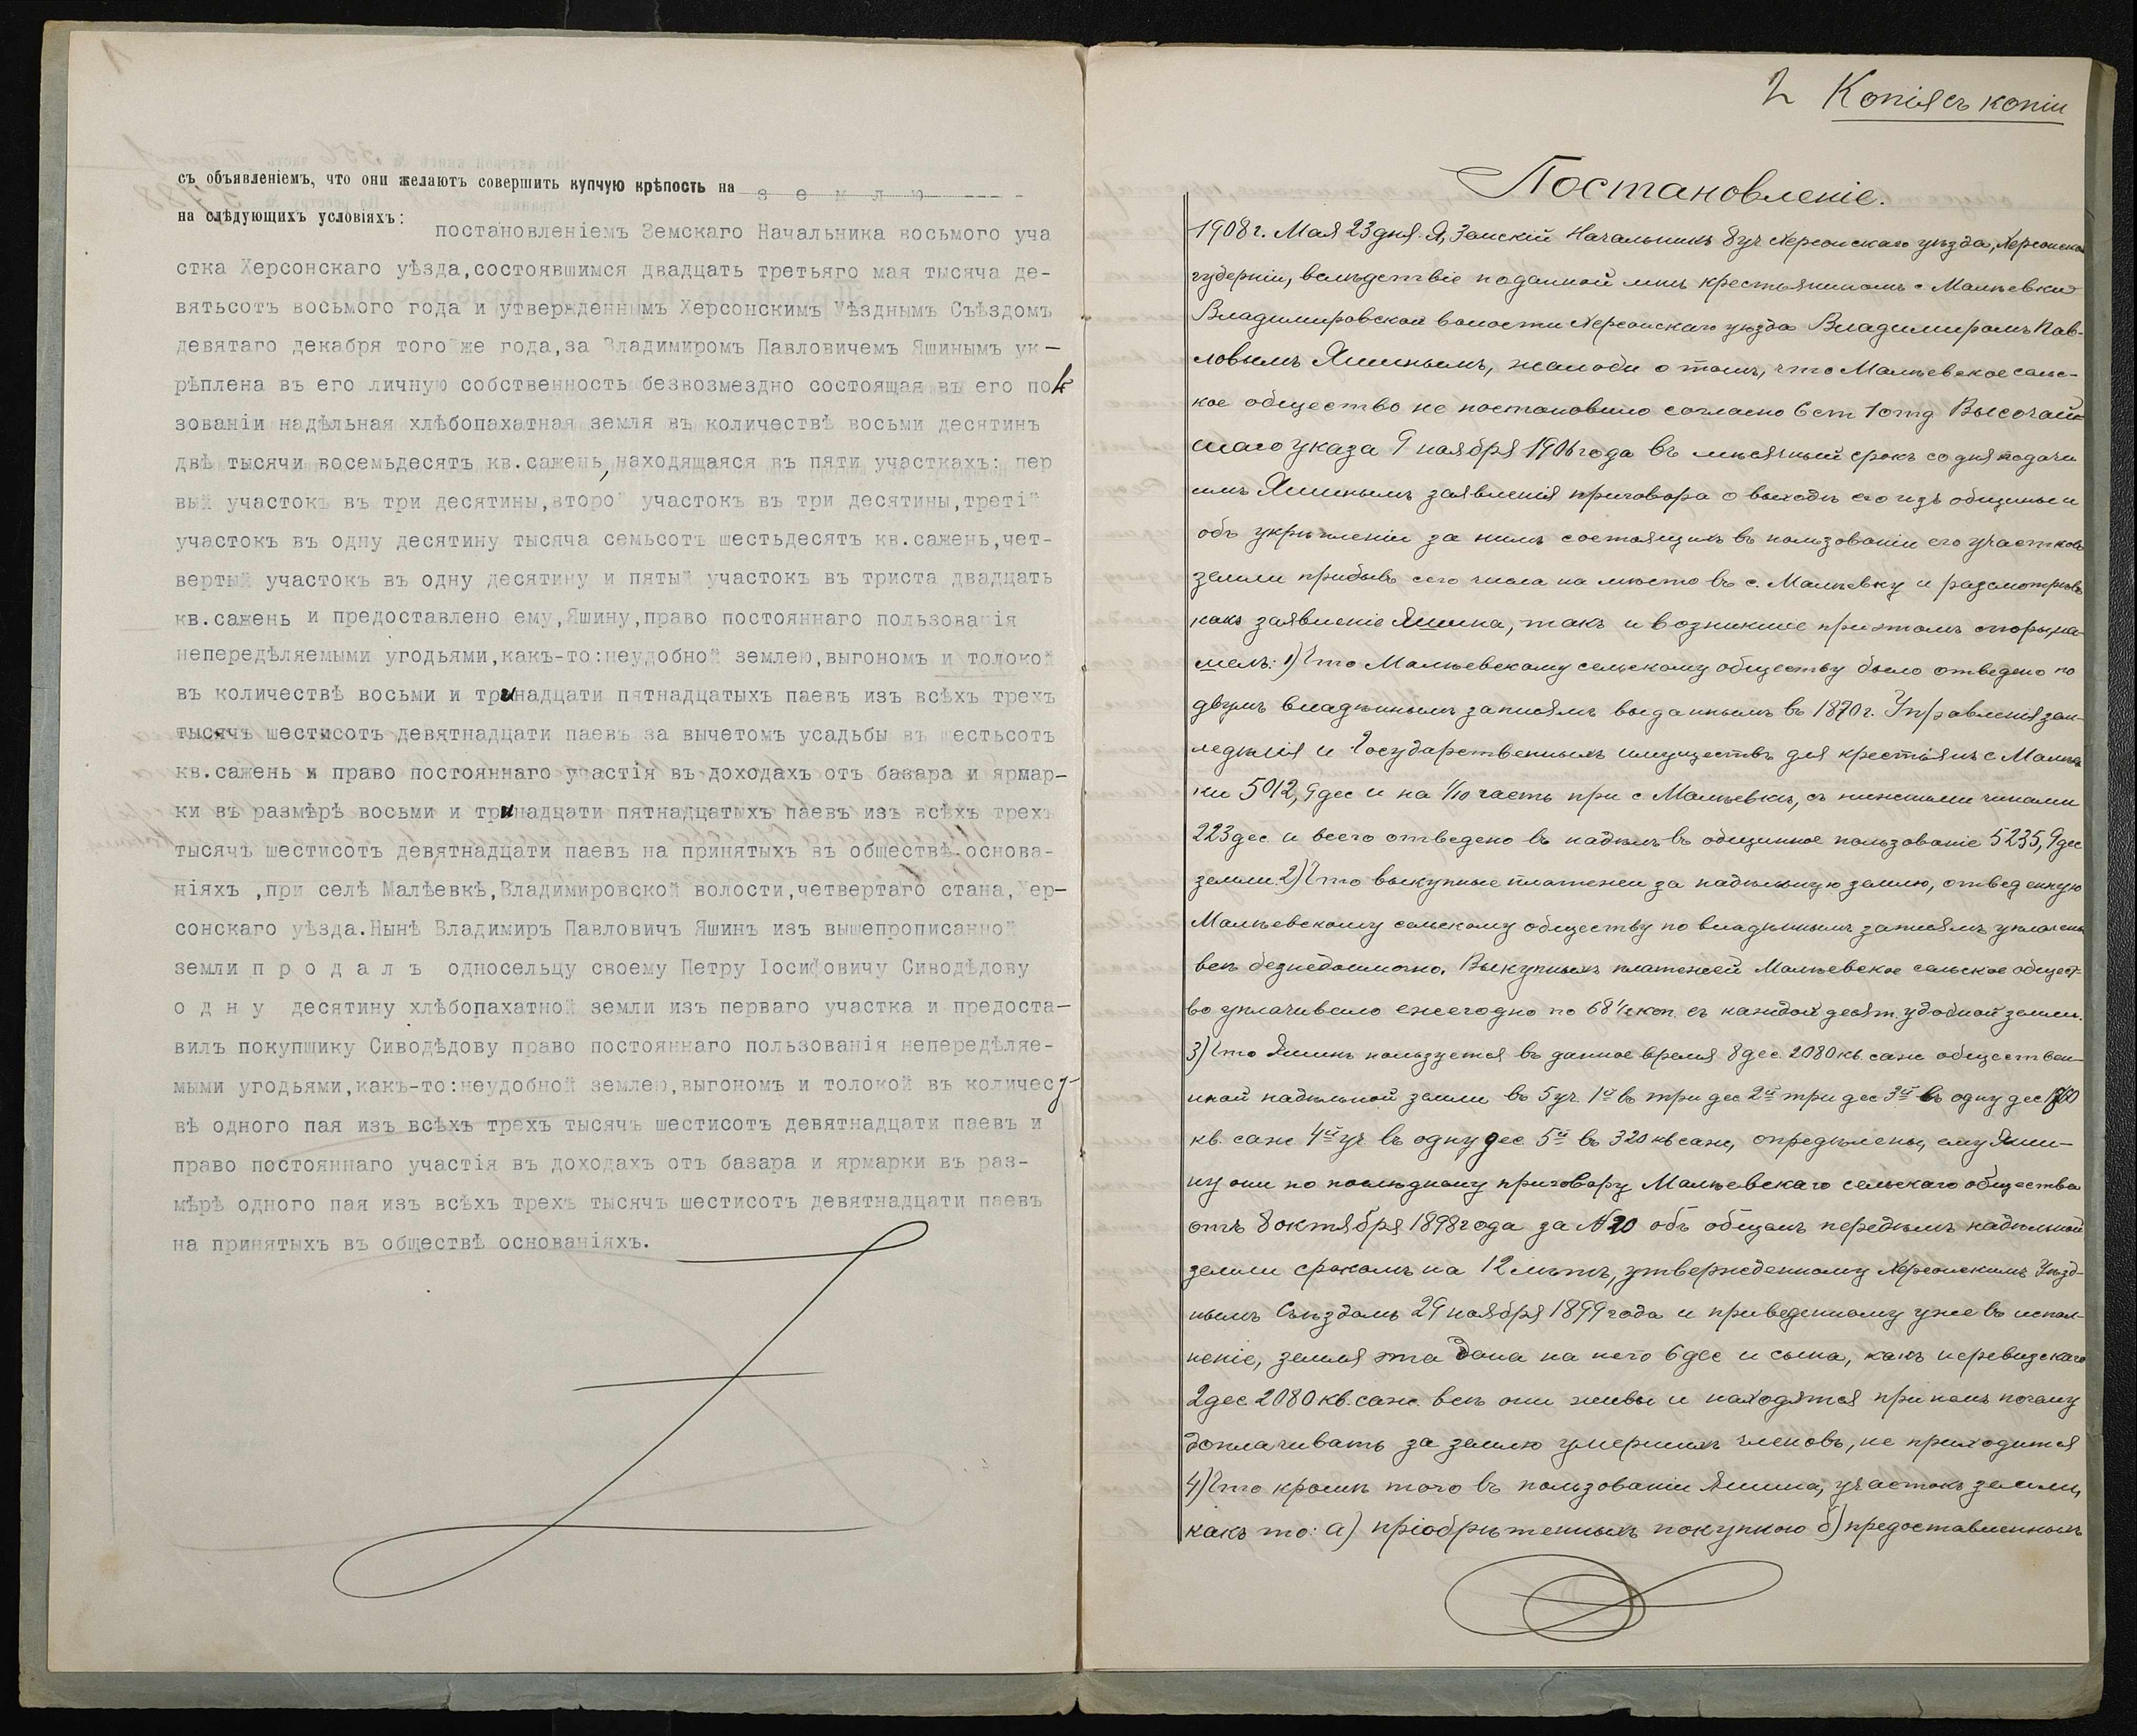 1
съ объявленіемъ, что они желаютъ совершить купчую крѣпость на з е м л ю - - - -
на слѣдующихъ условіяхъ:
постановленіемъ Земскаго Начальника восьмого уча
стка Херсонскаго уѣзда,состоявшимся двадцать третьяго мая тысяча де-
вятьсотъ восьмого года и утвержденнымъ Херсонскимъ Уѣзднымъ Съѣздомъ
девятаго декабря того же года,за Владимиромъ Павловичемъ Яшинымъ ук-
рѣплена въ его личную собственность безвозмездно состоящая въ его поль
зованіи надѣльная хлѣбопахатная земля въ количествѣ восьми десятинъ
двѣ тысячи восемьдесятъ кв.сажень, находящаяся въ пяти участкахъ: пер
вый участокъ въ три десятины,второй участокъ въ три десятины,третій
участокъ въ одну десятину тысяча семьсотъ шестьдесятъ кв.сажень,чет-
вертый участокъ въ одну десятину и пятый участокъ въ триста двадцать
кв.сажень и предоставлено ему,Яшину,право постояннаго пользованія
непередѣляемыми угодьями,какъ-то:неудобной землею,выгономъ и толокой
въ количествѣ восьми и тринадцати пятнадцатыхъ паевъ изъ всѣхъ трехъ
тысячъ шестисотъ девятнадцати паевъ за вычетомъ усадьбы въ шестьсотъ
кв.сажень и право постояннаго участія въ доходахъ отъ базара и ярмар-
ки въ размѣрѣ восьми и тринадцати пятнадцатыхъ паевъ изъ всѣхъ трехъ
тысячъ шестисотъ девятнадцати паевъ на принятыхъ въ обществѣ основа-
ніяхъ ,при селѣ Малѣевкѣ,Владимировской волости,четвертаго стана,Хер-
сонскаго уѣзда.Нынѣ Владимиръ Павловичъ Яшинъ изъ вышепрописанной
земли п р о д а л ъ односельцу своему Петру Іосифовичу Сиводѣдову
о д н у десятину хлѣбопахатной земли изъ перваго участка и предоста-
вилъ покупщику Сиводѣдову право постояннаго пользованія непередѣляе-
мыми угодьями,какъ-то:неудобной землею,выгономъ и толокой въ количест
вѣ одного пая изъ всѣхъ трехъ тысячъ шестисотъ девятнадцати паевъ и
право постояннаго участія въ доходахъ отъ базара и ярмарки въ раз-
мѣрѣ одного пая изъ всѣхъ трехъ тысячъ шестисотъ девятнадцати паевъ
на принятыхъ въ обществѣ основаніяхъ.
2 Копія съ копіи
Постановленіе.
1908 г. Мая 23 дня. Я, Земскій Начальникъ 8 уч Херсонскаго уѣзда, Херсонской
губерніи, вслѣдствіе поданной мнѣ крестьяниномъ с Малѣевки
Владимировской волости Херсонскаго уѣзда Владимиромъ Пав-
ловымъ Яшинымъ, жалобы о томъ, что Малѣевское сель-
кое общество не постановило согласно 6 ст 1 отд Высочай-
шаго указа 9 ноября 1906 года въ мѣсячный срокъ со дня подачи
имъ Яшинымъ заявленія приговора о выходѣ его изъ общины и
объ укрѣпленіи за нимъ состоящихъ въ пользованіи его участковъ
земли прибывъ сего числа на мѣсто въ с. Малѣевку и разсмотрѣвъ
какъ заявленіе Яшина, такъ и возникшіе при этомъ споры, на-
шелъ: 1) Что Малѣевскому сельскому обществу было отведено по
двумъ владѣннымъ записямъ выданнымъ въ 1870 г. Управленія зем-
ледѣлія и Государственныхъ имуществъ для крестьянъ с Малѣев
ки 5012,9 дес и на 1/10 часть при с Малѣевкѣ, съ нижними чинами
223 дес и всего отведено въ надѣлъ въ общинное пользованіе 5235,9 дес
земли. 2) Что выкупные платежи за надѣльную землю, отведенную
Малѣевскому сельскому обществу по владѣннымъ записямъ уплачены
всѣ бездоимочно. Выкупныхъ платежей Малѣевское сельское общест-
во уплачивало ежегодно по 68 1/2 коп. съ каждой десят. удобной земли.
3) Что Яшинъ пользуется въ данное время 8 дес 2080 кв. саж обществен-
нной надѣльной земли въ 5 уч 1й въ три дес 2й три дес 3й въ одну дес 1760
кв. саж 4й уч въ одну дес 5й въ 320 кв саж, опредѣлены, ему Яши-
ну они по послѣднему приговору Малѣевскаго сельскаго общества
отъ 8 октября 1898 года за №20 объ общемъ передѣлѣ надѣльной
земли срокомъ на 12 лѣтъ, утвержденному Херсонскимъ Уѣзд-
нымъ Съѣздомъ 29 ноября 1899 года и приведенному уже въ испол-
неніе, земля эта дана на него 6 дес и сына, какъ неревизскаго
2 дес 2080 кв. саж. всѣ они живы и находятся при немъ почему
доплачивать за землю умершихъ членовъ, не приходится
4) Что кромѣ того въ пользованіи Яшина, участокъ земли,
какъ то: а) пріобрѣтенныхъ покупкою б) предоставленныхъ